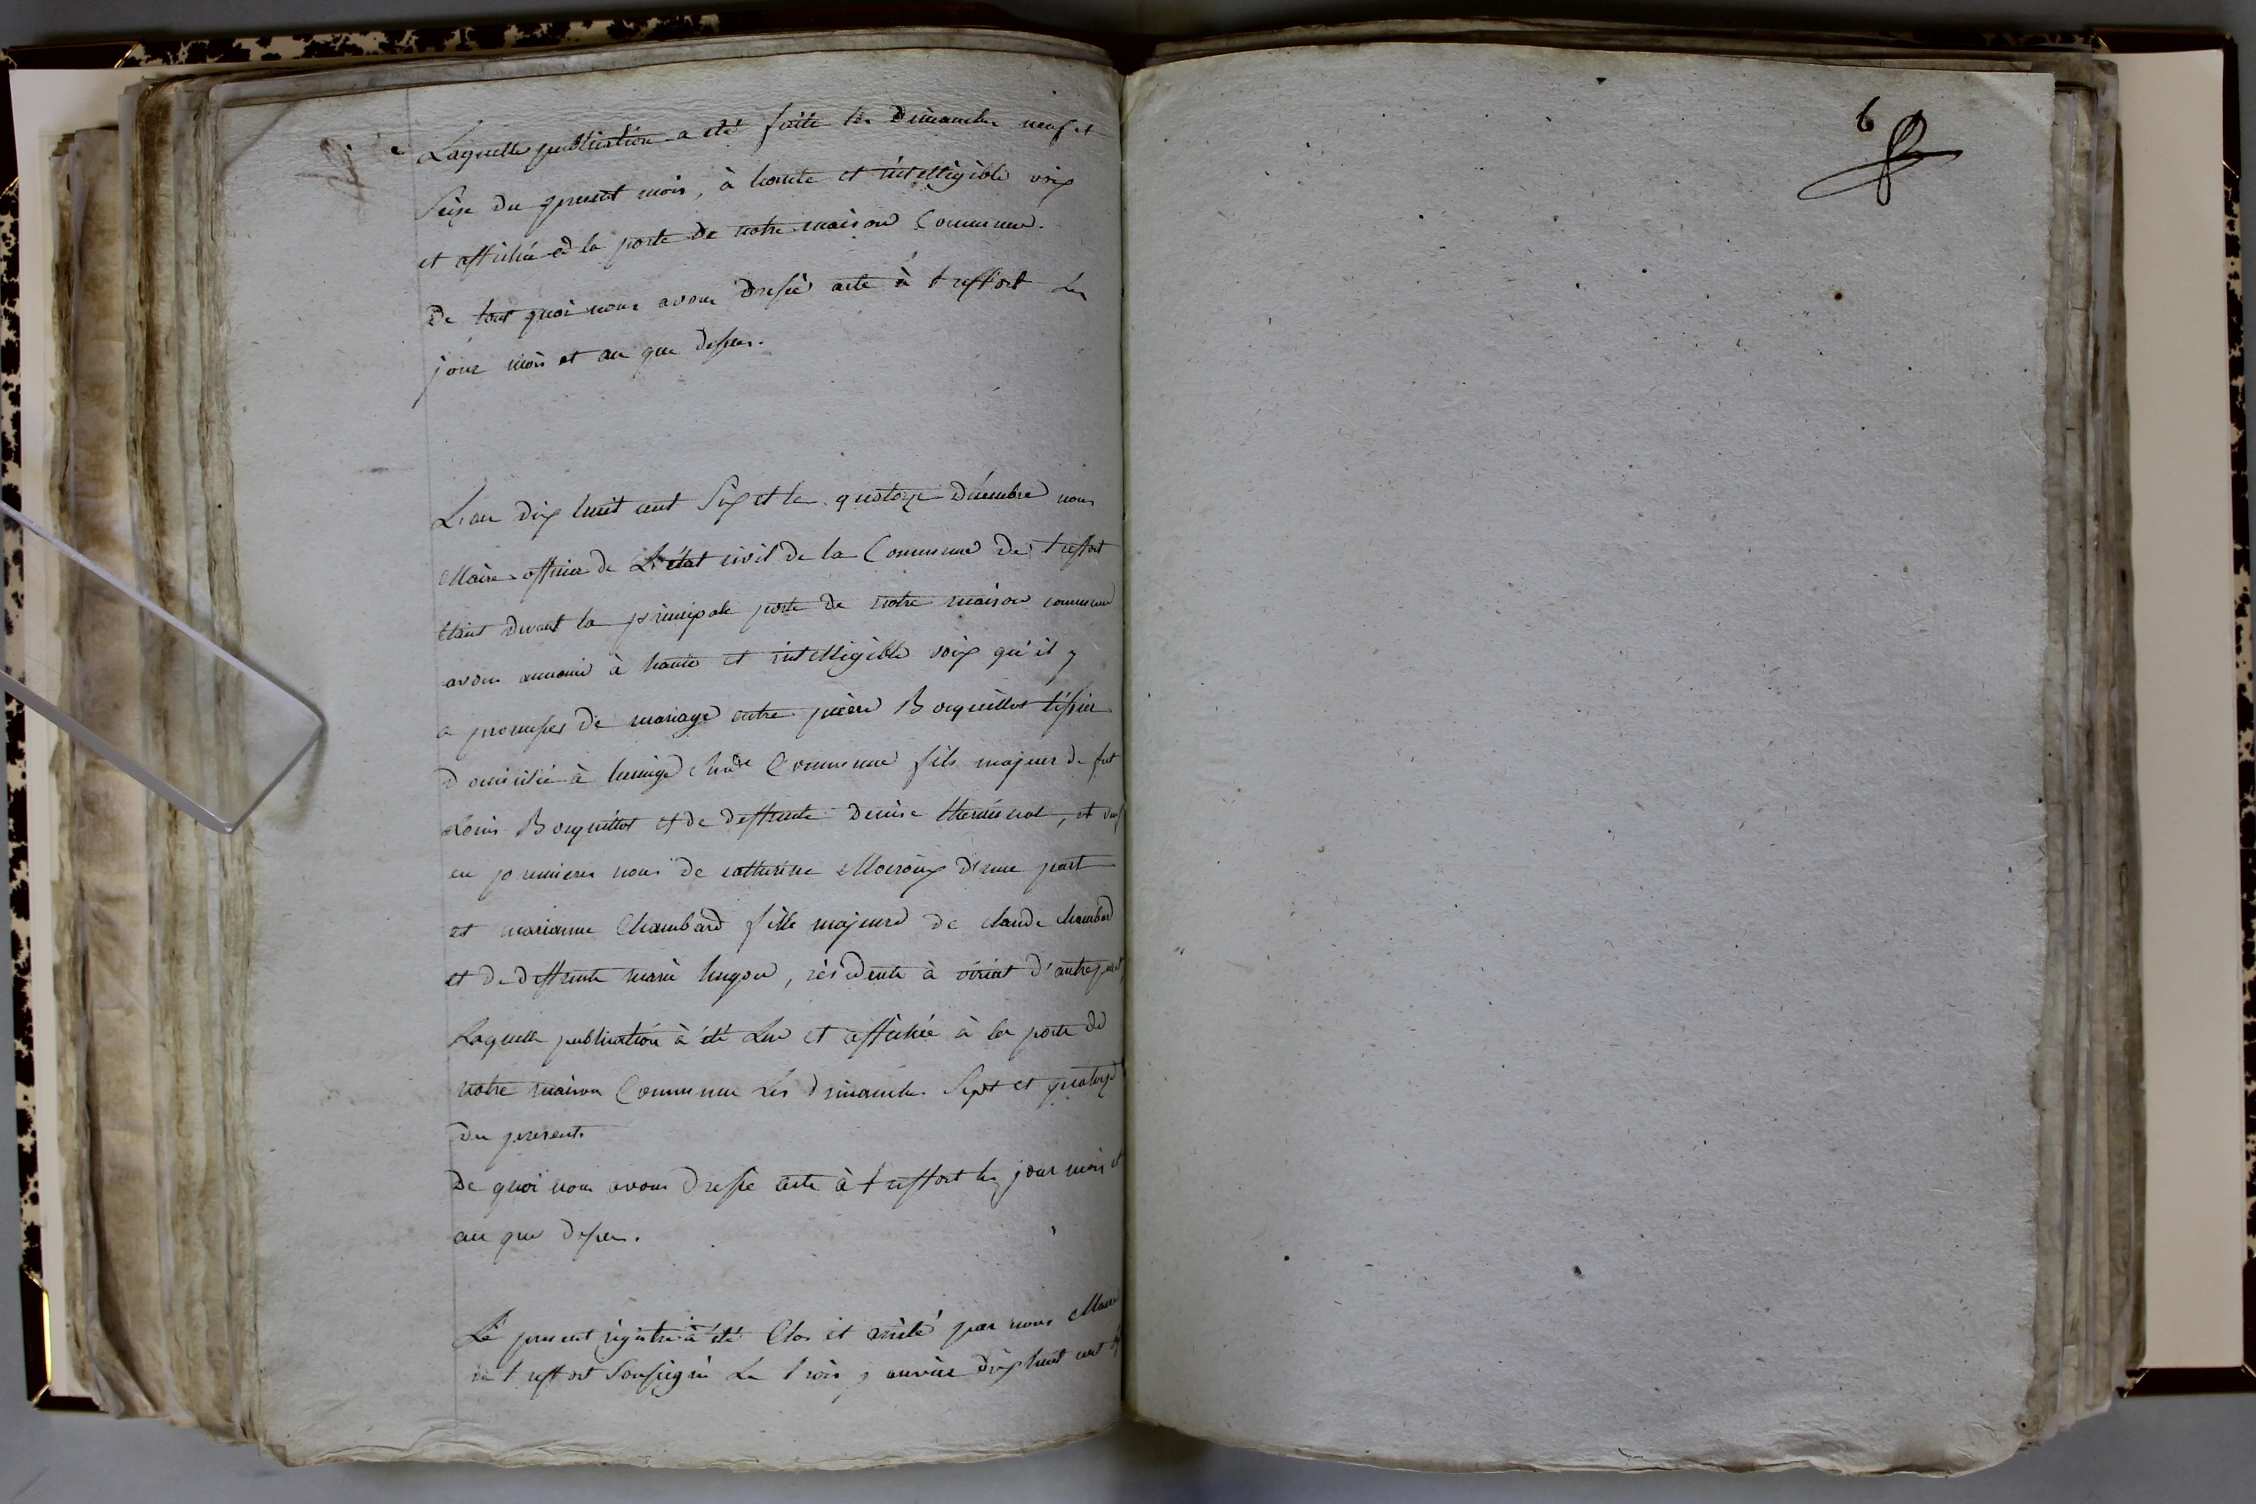 Laquelle publication a été faitte les Dimanches neuf et
Seize du present mois, à haute et intelligible voix
et affichée à la porte de notre maison Commune.
De tout quoi nous avons dressé acte à treffort Les
jour mois et an que dessus.
L'an dix huit cent Six et le quatorze décembre nous
Maire officier de L'état civil de la Commune de treffort
étant devant la principale porte de notre maison commune
avons annoncé à haute et intelligible voix qu'il y
a promesses de mariage entre pierre Bocquillot tissier
domicilié à Commune fils majeur de fut
Louis Bocquillot et de deffunte denise et veuf
en premieres noces de catherine d'une part
et marianne Chambard fille majeure de claude chambard
et de deffunte marie hugon, résidente à viriat d'autre part,
Laquelle publication à été Lue et affichée à la porte de
notre maison Commune Les dimanches Sept et quatorze
du present
De quoi nous avons dressé acte à treffort les jour mois et
an que dessus.
Le present registre à été Clos et arrêté par nous Maire
de treffort Soussigné Le trois janvier dix huit cent
6